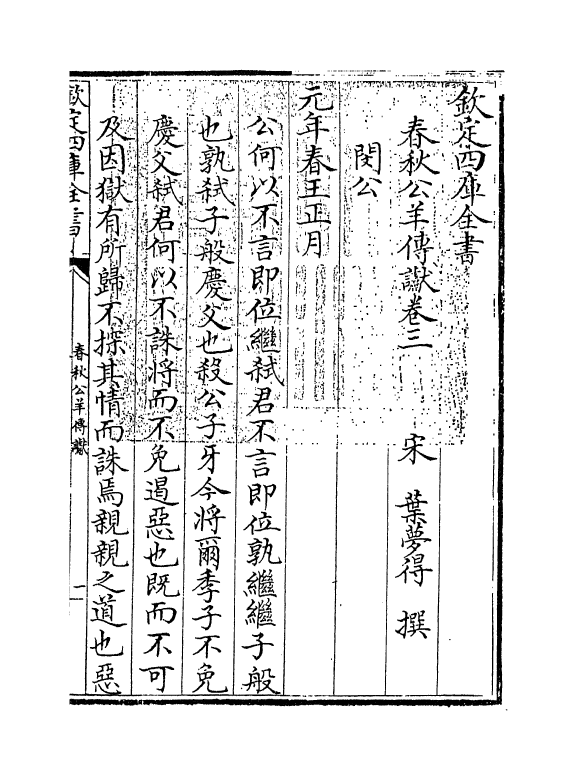 欽定四庫全書
春秋公羊傳讞卷三　宋　葉夢得　撰
閔公
元年春王正月
公何以不言即位繼弑君不言即位孰繼繼子般
也孰弑子般慶父也殺公子牙今將爾季子不免
慶父弑君何以不誅將而不免遏惡也既而不可
及因獄有所歸不探其情而誅焉親親之道也惡
欽定四庫全書
春秋公羊傳讞
一